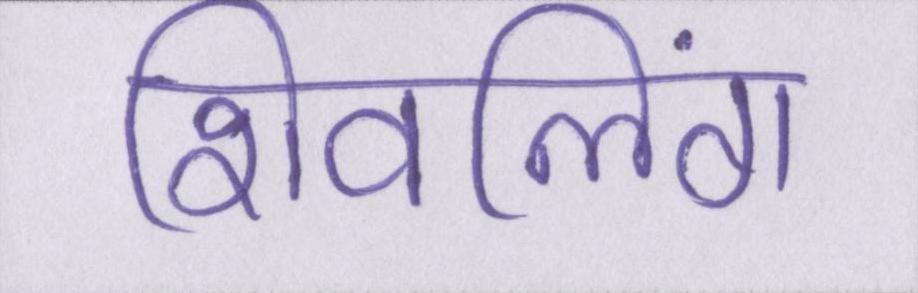 शिवलिंग